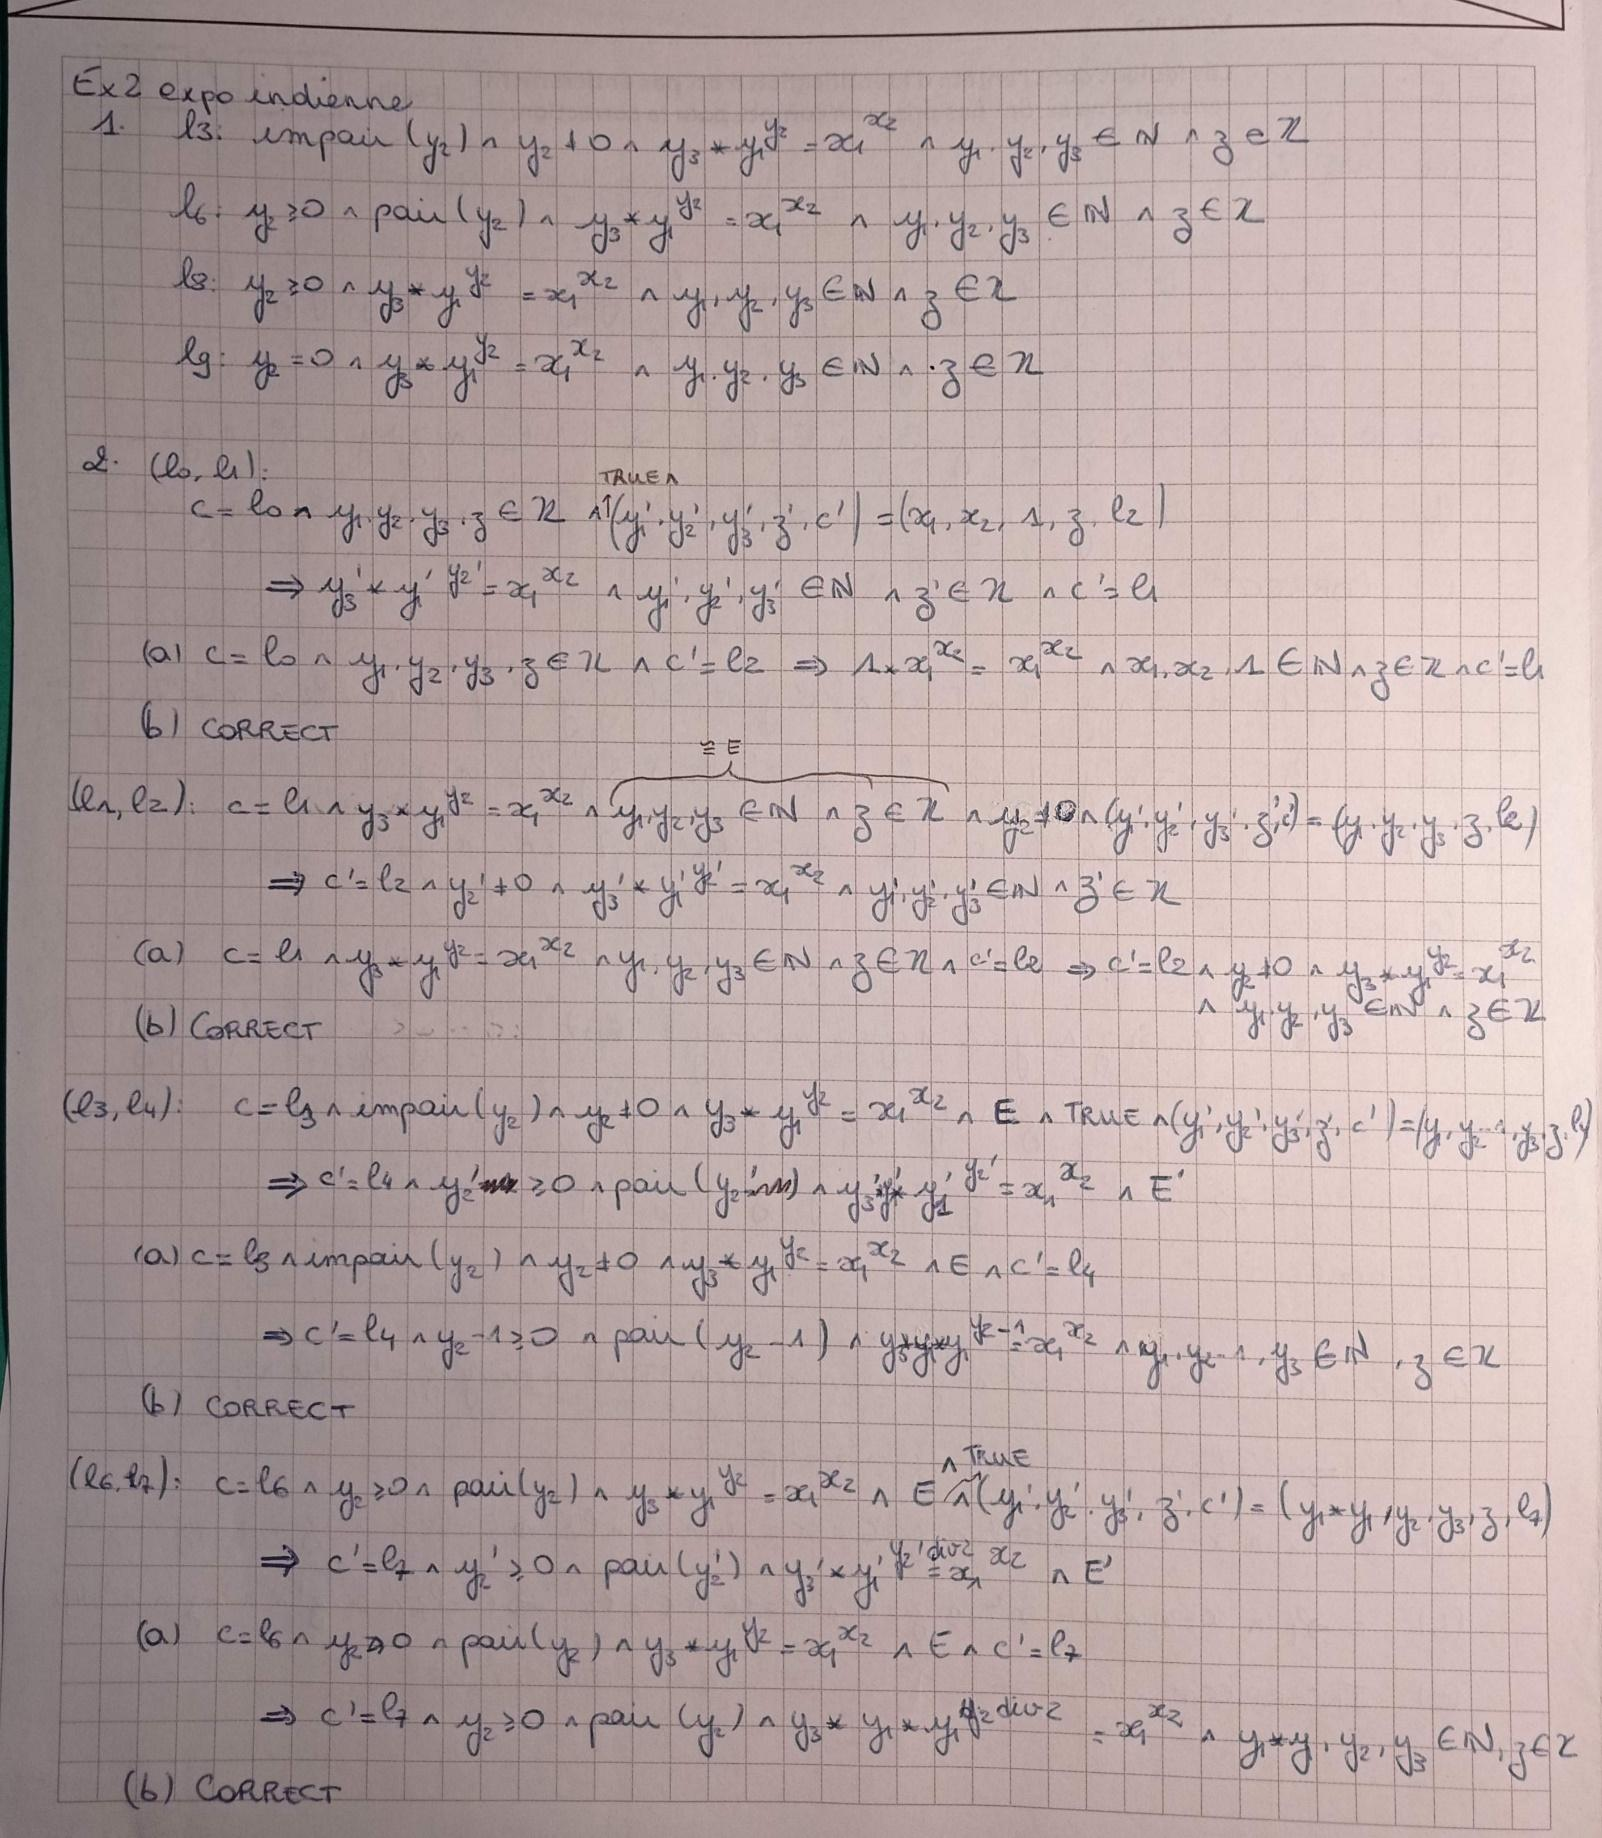 Ex2 expo indienne
1. l3: impair(y2) ∧ y2 ≠ 0 ∧ y3 * y1^y2 = x1^x2 ∧ y1, y2, y3 ∈ ℕ ∧ z ∈ ℤ
l6: y2 ≥ 0 ∧ pair(y2) ∧ y3 * y1^y2 = x1^x2 ∧ y1, y2, y3 ∈ ℕ ∧ z ∈ ℤ
l8: y2 ≥ 0 ∧ y3 * y1^y2 = x1^x2 ∧ y1, y2, y3 ∈ ℕ ∧ z ∈ ℤ
l9: y2 = 0 ∧ y3 * y1^y2 = x1^x2 ∧ y1, y2, y3 ∈ ℕ ∧ z ∈ ℤ
2. (l0, l1):
TRUE ∧
c = l0 ∧ y1, y2, y3, z ∈ ℤ ∧ (y1', y2', y3', z', c') = (x1, x2, 1, z, l2)
⇒ y3' * y1'^y2' = x1^x2 ∧ y1', y2', y3' ∈ ℕ ∧ z' ∈ ℤ ∧ c' = l1
(a) c = l0 ∧ y1, y2, y3, z ∈ ℤ ∧ c' = l2 ⇒ 1 * x1^x2 = x1^x2 ∧ x1, x2, 1 ∈ ℕ ∧ z ∈ ℤ ∧ c' = l1
(b) CORRECT
≅ E
(l1, l2): c = l1 ∧ y3 * y1^y2 = x1^x2 ∧ y1, y2, y3 ∈ ℕ ∧ z ∈ ℤ ∧ y2 ≠ 0 ∧ (y1', y2', y3', z', c') = (y1, y2, y3, z, l2)
⇒ c' = l2 ∧ y2' ≠ 0 ∧ y3' * y1'^y2' = x1^x2 ∧ y1', y2', y3' ∈ ℕ ∧ z' ∈ ℤ
(a) c = l1 ∧ y3 * y1^y2 = x1^x2 ∧ y1, y2, y3 ∈ ℕ ∧ z ∈ ℤ ∧ c' = l2 ⇒ c' = l2 ∧ y2 ≠ 0 ∧ y3 * y1^y2 = x1^x2
∧ y1, y2, y3 ∈ ℕ ∧ z ∈ ℤ
(b) CORRECT
(l3, l4): c = l3 ∧ impair(y2) ∧ y2 ≠ 0 ∧ y3 * y1^y2 = x1^x2 ∧ E ∧ TRUE ∧ (y1', y2', y3', z', c') = (y1, y2-1, y3, z, l4)
⇒ c' = l4 ∧ y2' ≥ 0 ∧ pair(y2') ∧ y3' * y1' * y1'^y2' = x1^x2 ∧ E'
(a) c = l3 ∧ impair(y2) ∧ y2 ≠ 0 ∧ y3 * y1^y2 = x1^x2 ∧ E ∧ c' = l4
⇒ c' = l4 ∧ y2-1 ≥ 0 ∧ pair(y2-1) ∧ y3 * y1 * y1^y2-1 = x1^x2 ∧ y1, y2-1, y3 ∈ ℕ, z ∈ ℤ
(b) CORRECT
∧ TRUE
(l6, l7): c = l6 ∧ y2 ≥ 0 ∧ pair(y2) ∧ y3 * y1^y2 = x1^x2 ∧ E ∧ (y1', y2', y3', z', c') = (y1*y1, y2, y3, z, l7)
⇒ c' = l7 ∧ y2' ≥ 0 ∧ pair(y2') ∧ y3' * y1'^y2' div 2 = x1^x2 ∧ E'
(a) c = l6 ∧ y2 ≥ 0 ∧ pair(y2) ∧ y3 * y1^y2 = x1^x2 ∧ E ∧ c' = l7
⇒ c' = l7 ∧ y2 ≥ 0 ∧ pair(y2) ∧ y3 * y1 * y1^y2 div 2 = x1^x2 ∧ y1*y1, y2, y3 ∈ ℕ, z ∈ ℤ
(b) CORRECT